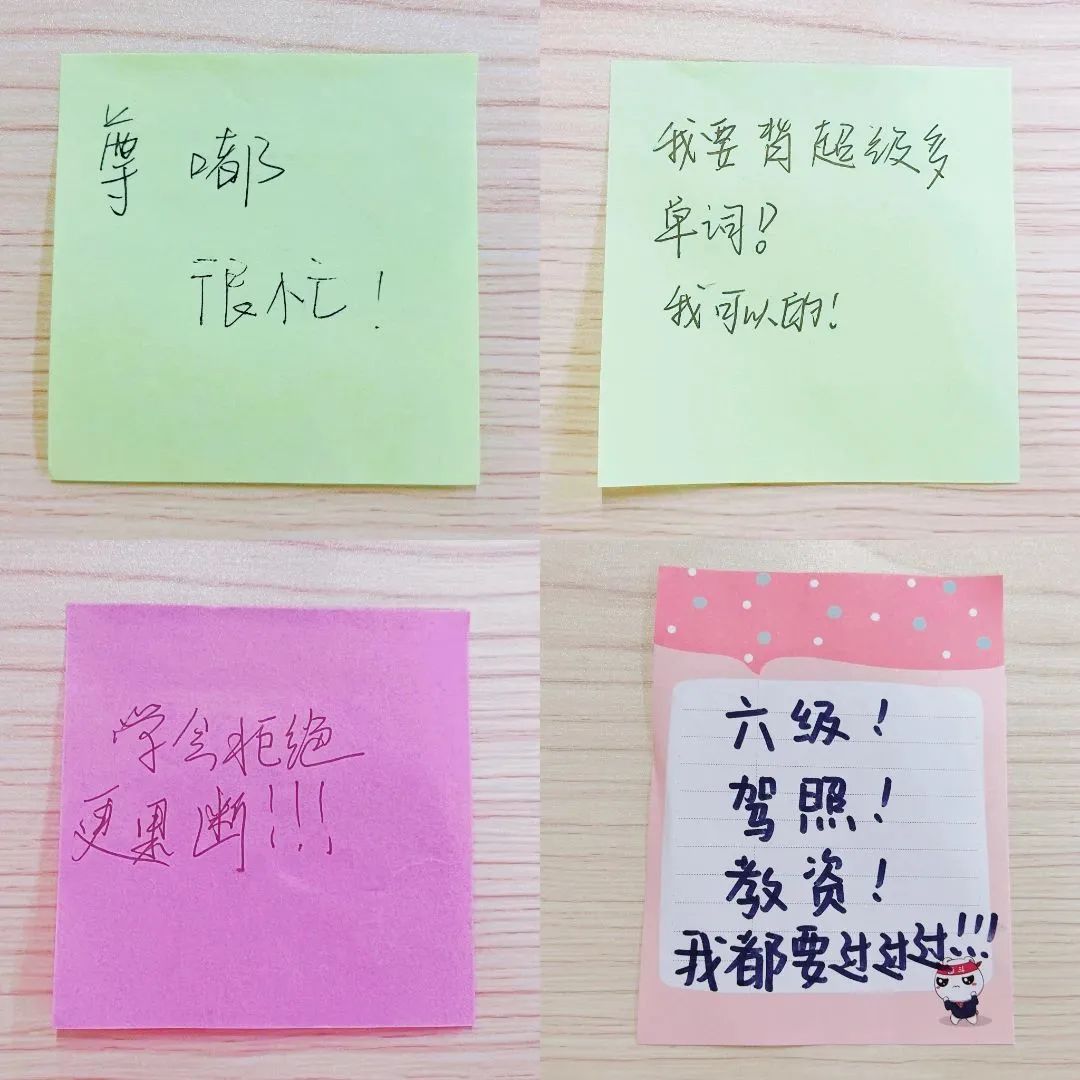 尊嘟
很忙!
我要背超级多
单词!?
我可以的!
学会拒绝
更果断!!!
六级!
驾照!
教资!
我都要过过过!!!